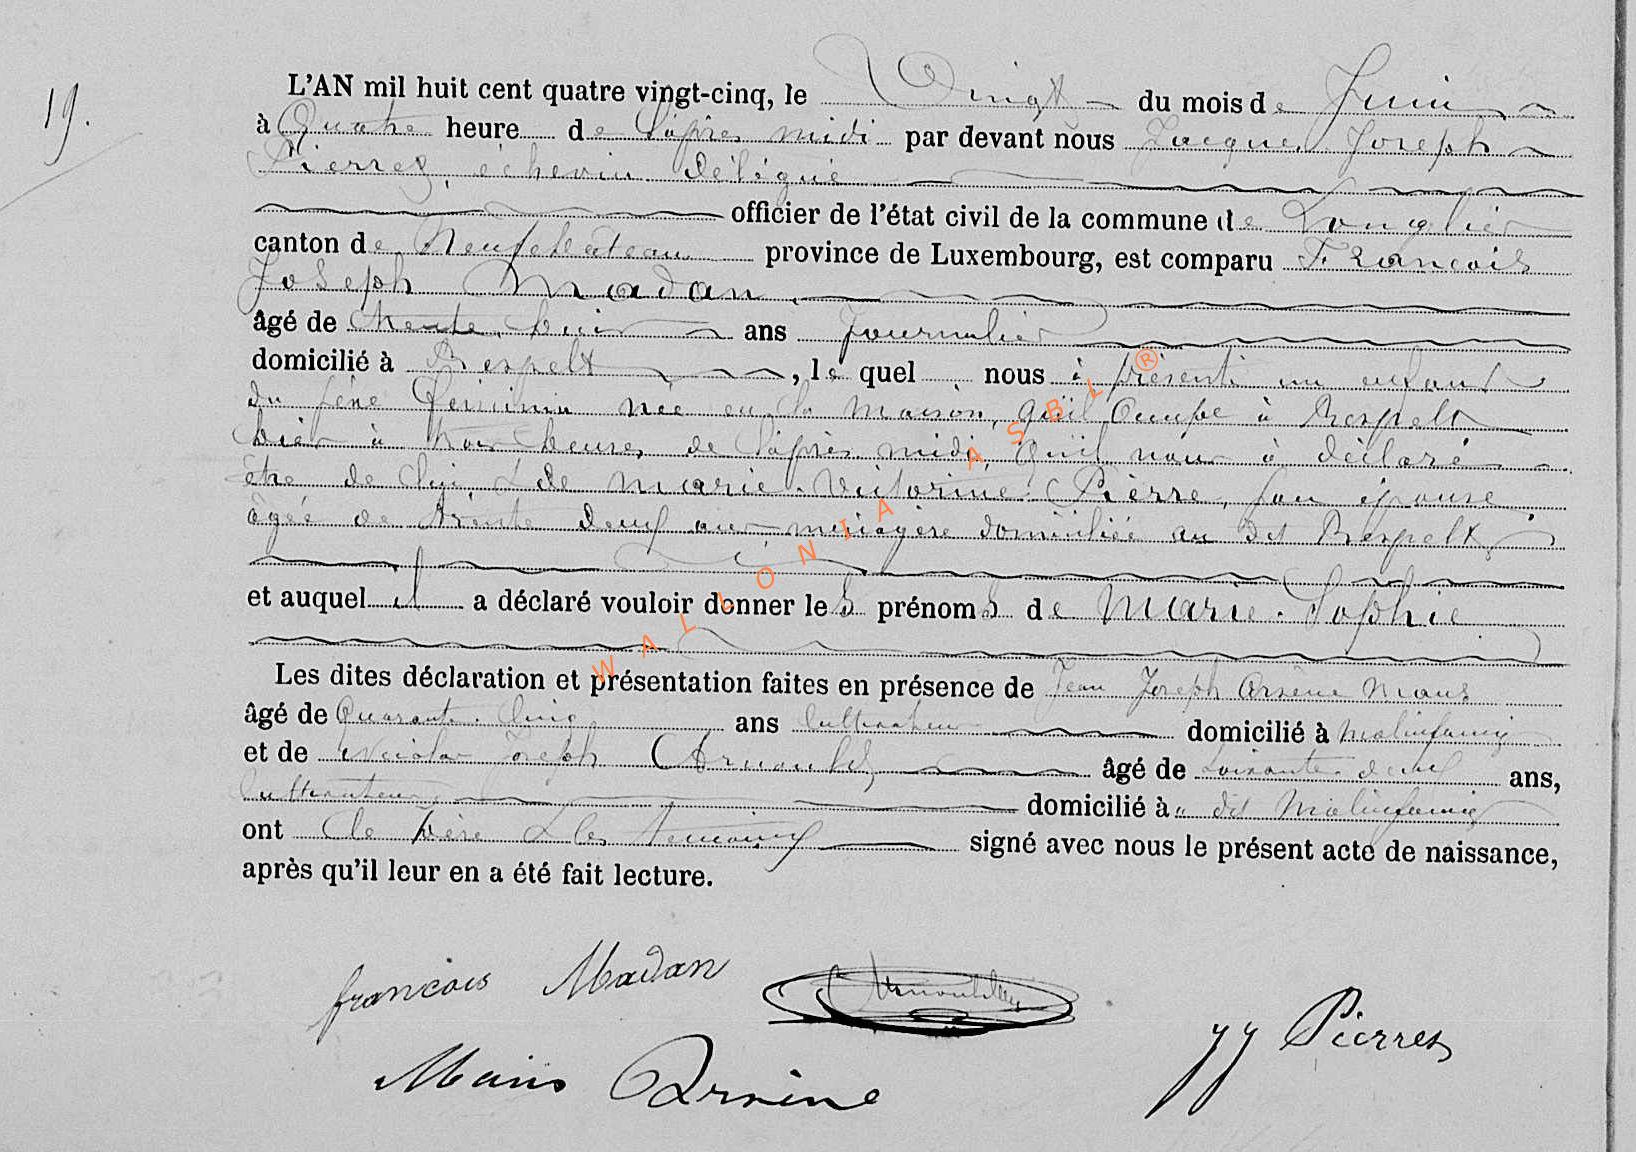 19.
L'AN mil huit cent quatre vingt-cinq, le Vingt du mois de Juin
à Quatre heure de l'après midi par devant nous Jacques Joseph
Pierret, échevin délégué
officier de l'état civil de la commune de Longlier
canton de Neufchâteau province de Luxembourg, est comparu François
Joseph Madan
âgé de trente huit ans Journalier
domicilié à Respelt, le quel nous à présenté un enfant
du séxe féminin née en la maison, qu'il Occupe à Respelt
hier à trois heures de l'après midi, Qu'il nous à déclaré
être de lui, & de Marie Victorine Pierre, son épouse,
âgée de trente deux ans ménagère domiciliée au dit Respelt
et auquel il a déclaré vouloir donner les prénoms de Marie Sophie
Les dites déclaration et présentation faites en présence de Jean Joseph Arsène Maus
âgé de Quarante Cinq ans Cultivateur domicilié à Molinfaing
et de Nicolas Joseph Arnould âgé de soixante deux ans,
Cultivateur domicilié à dit Molinfaing
ont le père & les témoins signé avec nous le présent acte de naissance,
après qu'il leur en a été fait lecture.
françois Madan
Arnould
Maus Arsène
JJ Pierret
WALLONIA ASBL ®